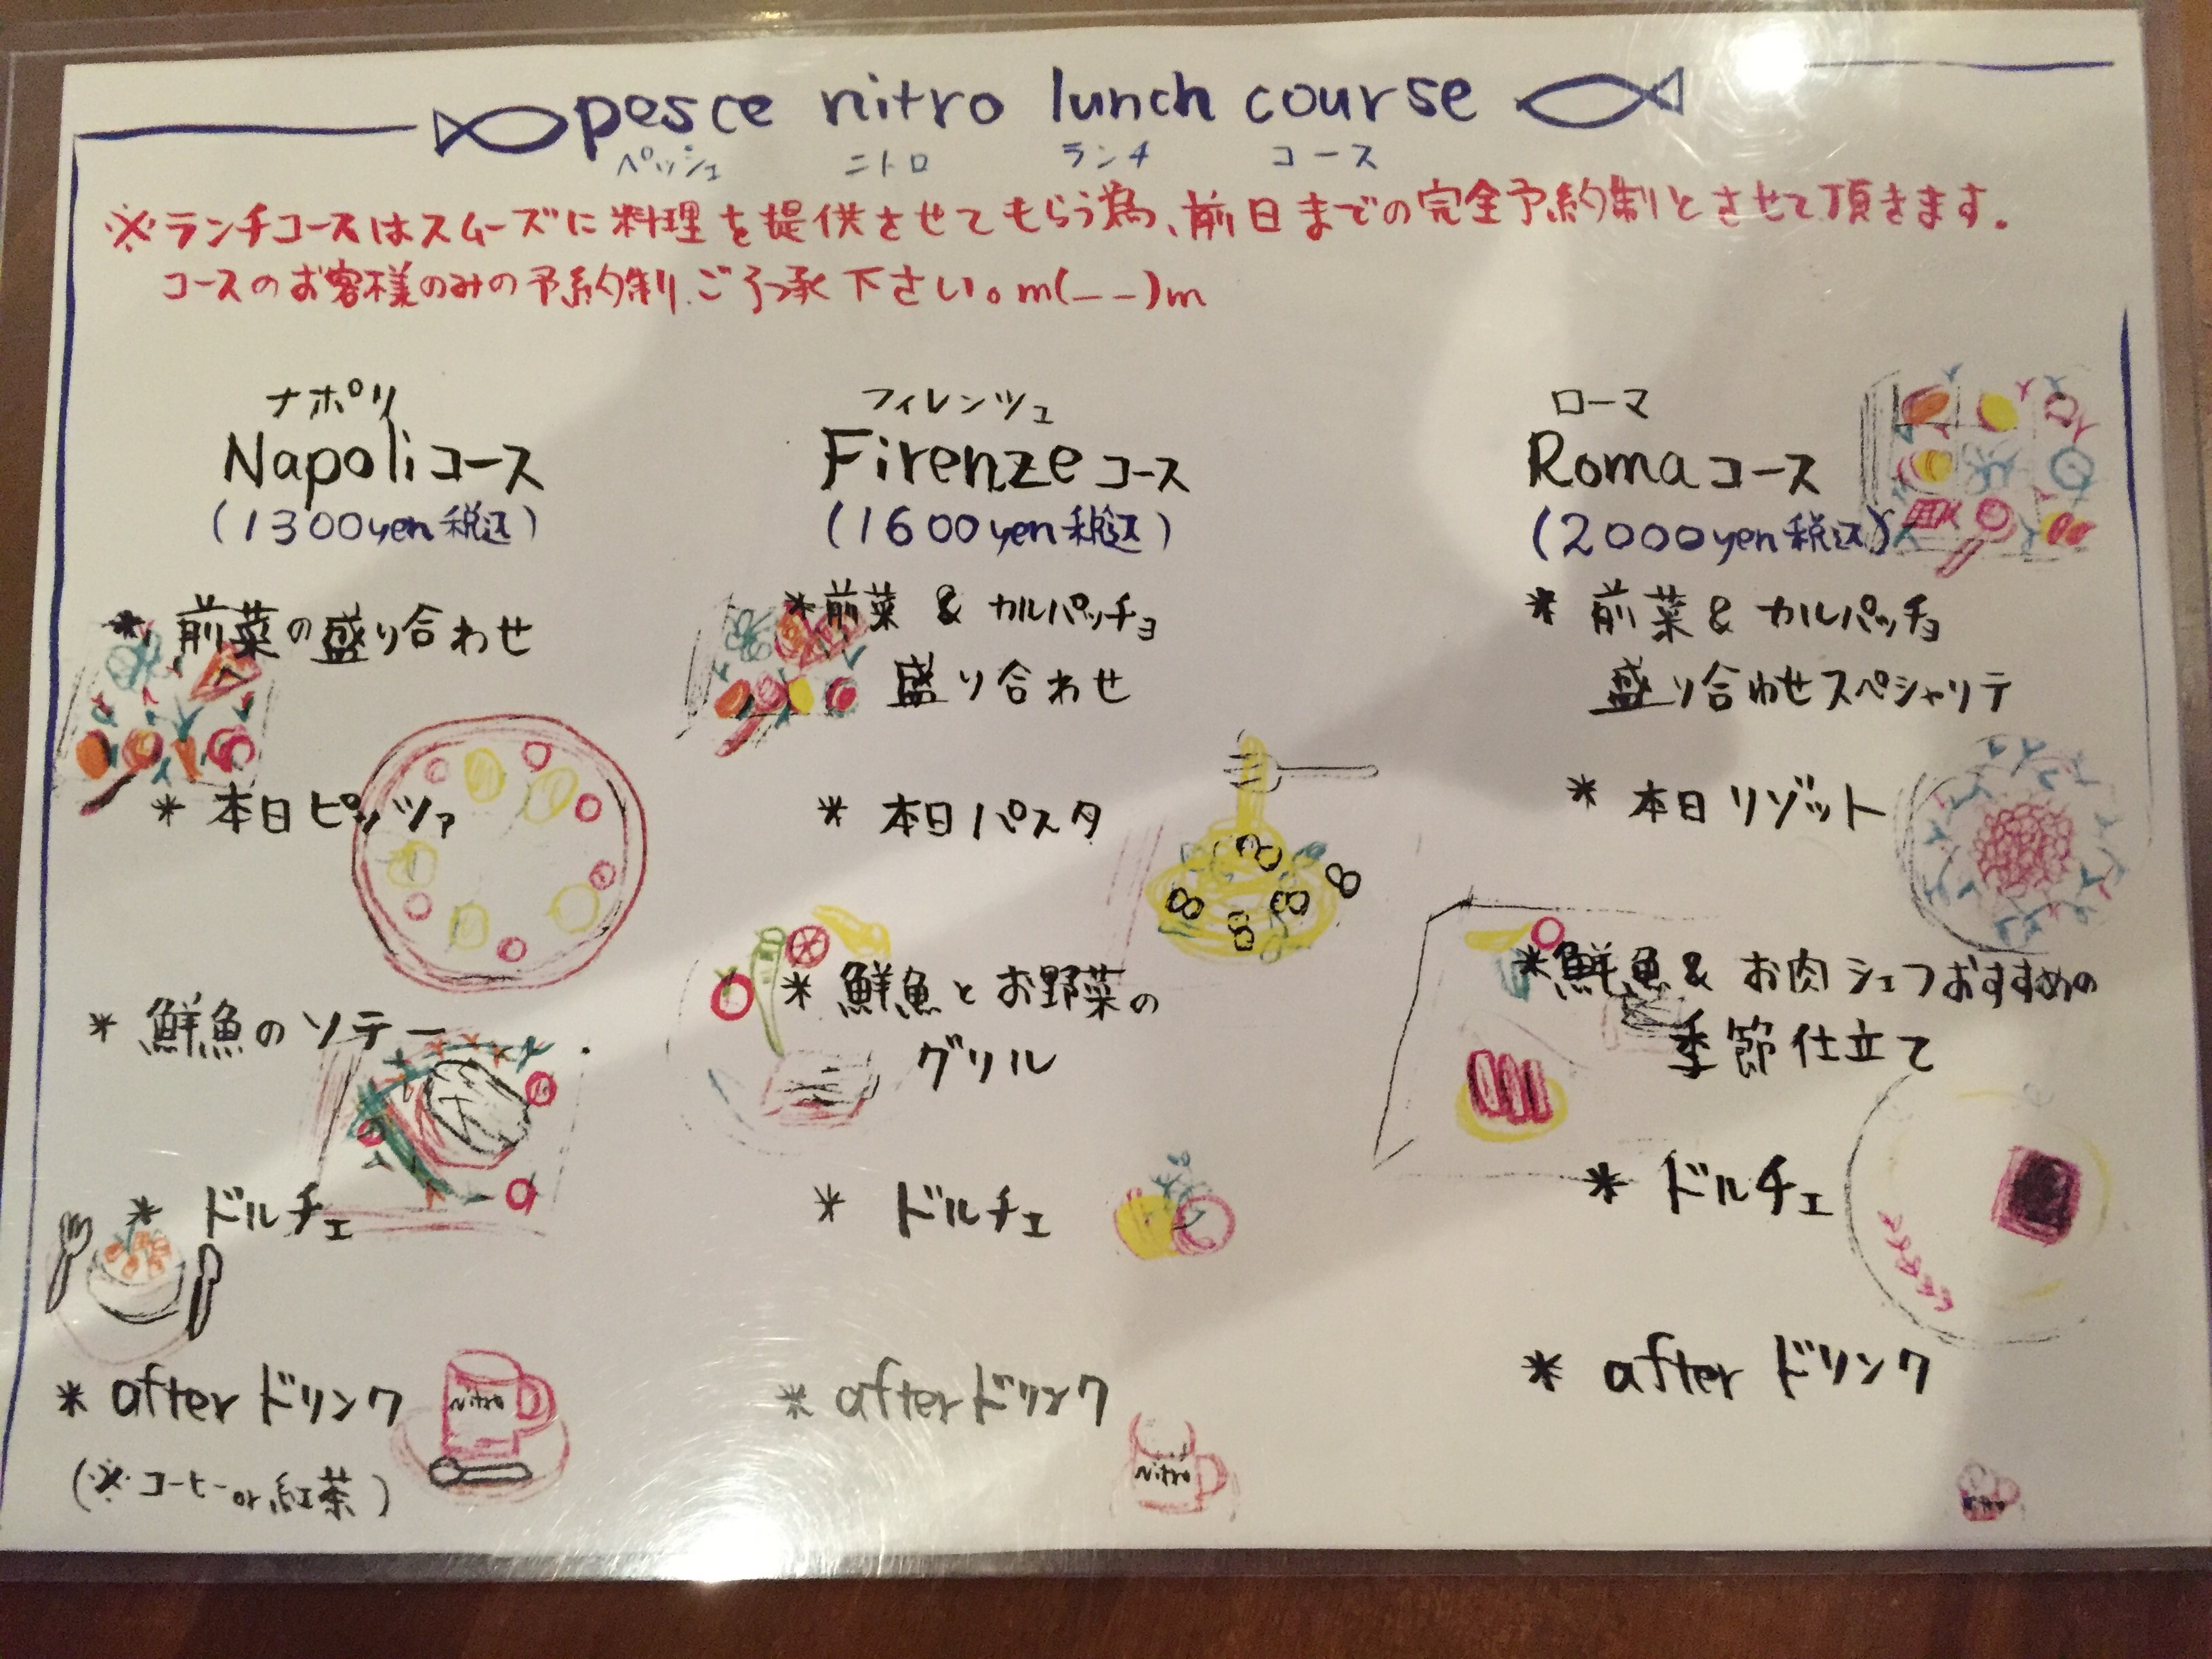 pesce nitro lunch course
ペッシェ ニトロ ランチ コース
※ランチコースはスムーズに料理を提供させてもらう為、前日までの完全予約制とさせて頂きます。
コースのお客様のみの予約制、ご了承下さい。m(__)m
ナポリ
Napoliコース
(1300yen税込)
*前菜の盛り合わせ
*本日ピッツァ
*鮮魚のソテー
*ドルチェ
*afterドリンク
(※コーヒーor紅茶)
nitro
フィレンツェ
Firenzeコース
(1600yen税込)
*前菜&カルパッチョ
盛り合わせ
*本日パスタ
*鮮魚とお野菜の
グリル
*ドルチェ
*afterドリンク
nitro
ローマ
Romaコース
(2000yen税込)
*前菜&カルパッチョ
盛り合わせスペシャリテ
*本日リゾット
*鮮魚&お肉シェフおすすめの
季節仕立て
*ドルチェ
*afterドリンク